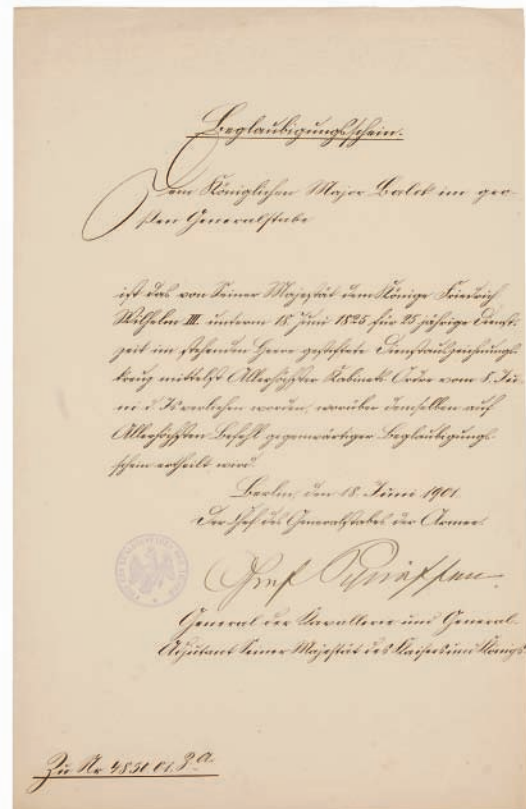 Beglaubigungsschein.
Dem Königlichen Major Balck im gro-
ßen Generalstabe
ist das von Seiner Majestät dem Könige Friedrich
Wilhelm III. unterm 18. Juni 1825 für 25 jährige Dienst-
zeit im stehenden Heere gestiftete Dienstauszeichnungs-
kreuz mittelst Allerhöchster Kabinets-Ordre vom 8. Ju-
ni d. Js. verliehen worden, worüber demselben auf
Allerhöchsten Befehl gegenwärtiger Beglaubigungs-
schein ertheilt wird.
Berlin, den 18. Juni 1901.
Der Chef des Generalstabes der Armee.
Graf Schlieffen
General der Kavallerie und General-
Adjutant Seiner Majestät des Kaisers und Königs
Zu Nr. 4830.01. Z.a.